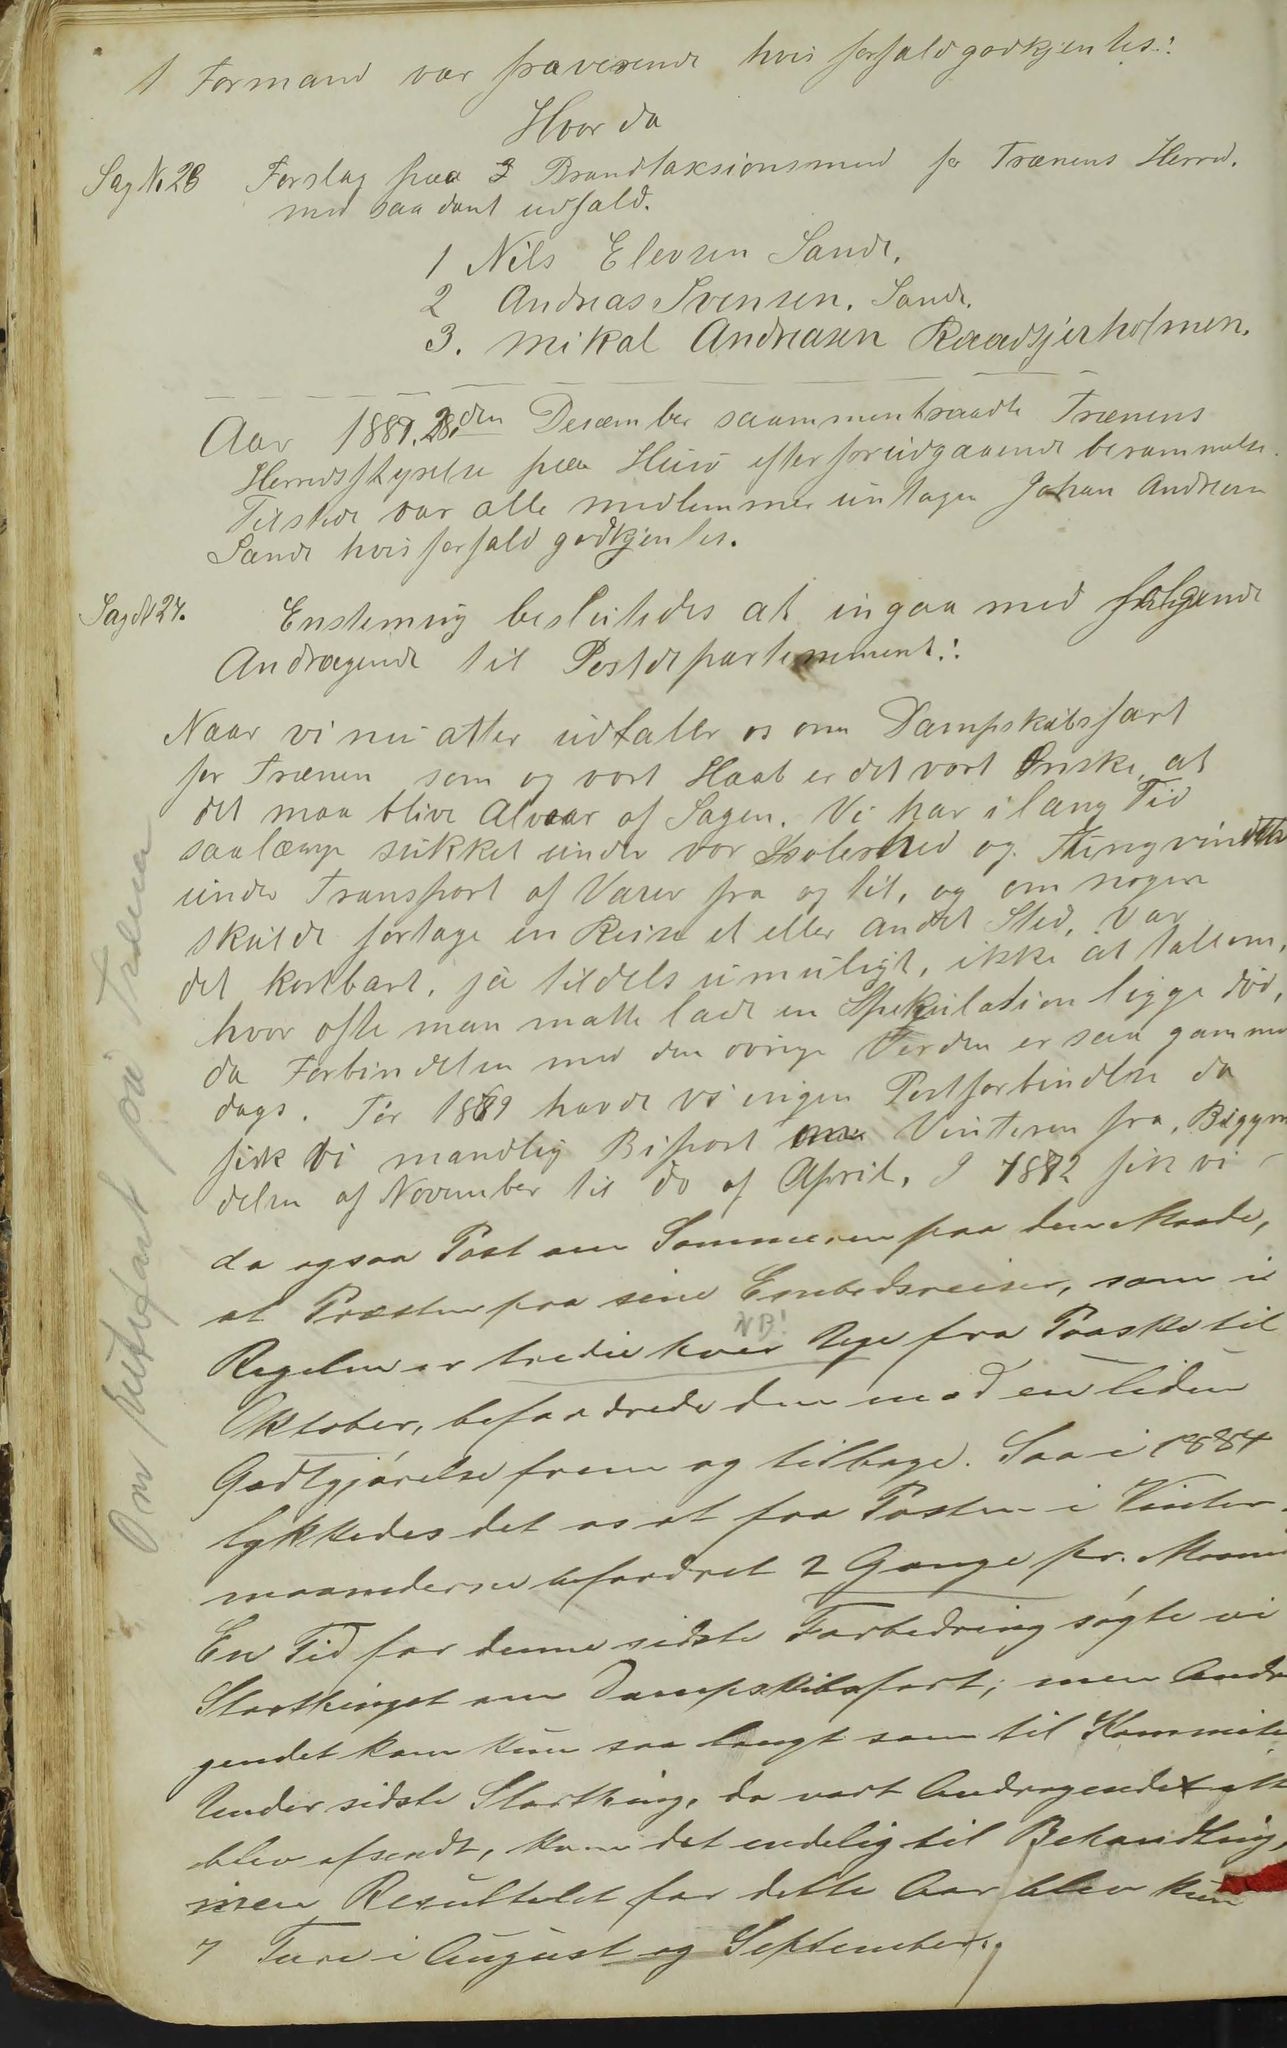 1 Formand var fraverende hvis forfald godkjentes:
Hvor da
Sag No 23 Forslag paa 3 Brandtaksionsmend for Trænens Herred.
med saadant udfald.
1 Nils Elevsen Sande.
2 Andreas Svensen. Sande.
3. Mikal Andreasen Raadsjerholmen.
Aar 1887. 28. den Desember saammentraadte Trænens
Herredsstyrelse paa Husø efter forudgaaende berammelse.
Tilstede var alle medlemmer untagen Johan Andreasen
Sande hvis forfald godkjentes.
Sag No 24. Enstemmig besluttedes at ingaa med følgende
Andragende til Postdepartemment:
Naar vi nu atter udtaller os om Dampskibsfart
for Trænen som og vort Haab er det vort Ønske, at
det maa blive Alvaar af Sagen. Vi har i lang Tid
saalænge sukket under vor Isolerthed og
under Transport af Varer fra og til, og om nogen
skulde fortage en Reise et eller andet Sted, var
det kostbart, ja tildels umuligt, ikke at talle om,
hvor ofte man matte lade en Spekulation ligge død,
da Forbindelsen med den øvrige Verden er saa gammel
dags. Før 1869 havde vi ingen Postforbindelse da
fik vi mandlig Bipost om Vinteren fra Begyn
delsen af November til do af April. I 1882 fik vi
da ogsaa Post om Sommeren paa den Maade,
at Præsten paa sine Embedsreiser, som i
NB!
Regelen er tredie hver Uge fra Paaske til
Oktober, befordrede den mod en liden
Godtgjørelse frem og tilbage. Saa i 1884
lykkedes det os at faa Posten i Vinter-
maanederne befordret 2 Gange pr. Maaned
En Tid før denne sidste Forbedring søgte vi
Storthinget om Dampskibsfart; men Andra
gendet kom kun saa langt som til Kommite
Under sidste Storthing, da vort Andragende atter
blev afsendt, kom det endelig til Behandling,
men Resultatet for dette Aar blev kun
7 Ture i August og September.
Om rutefart på Træna